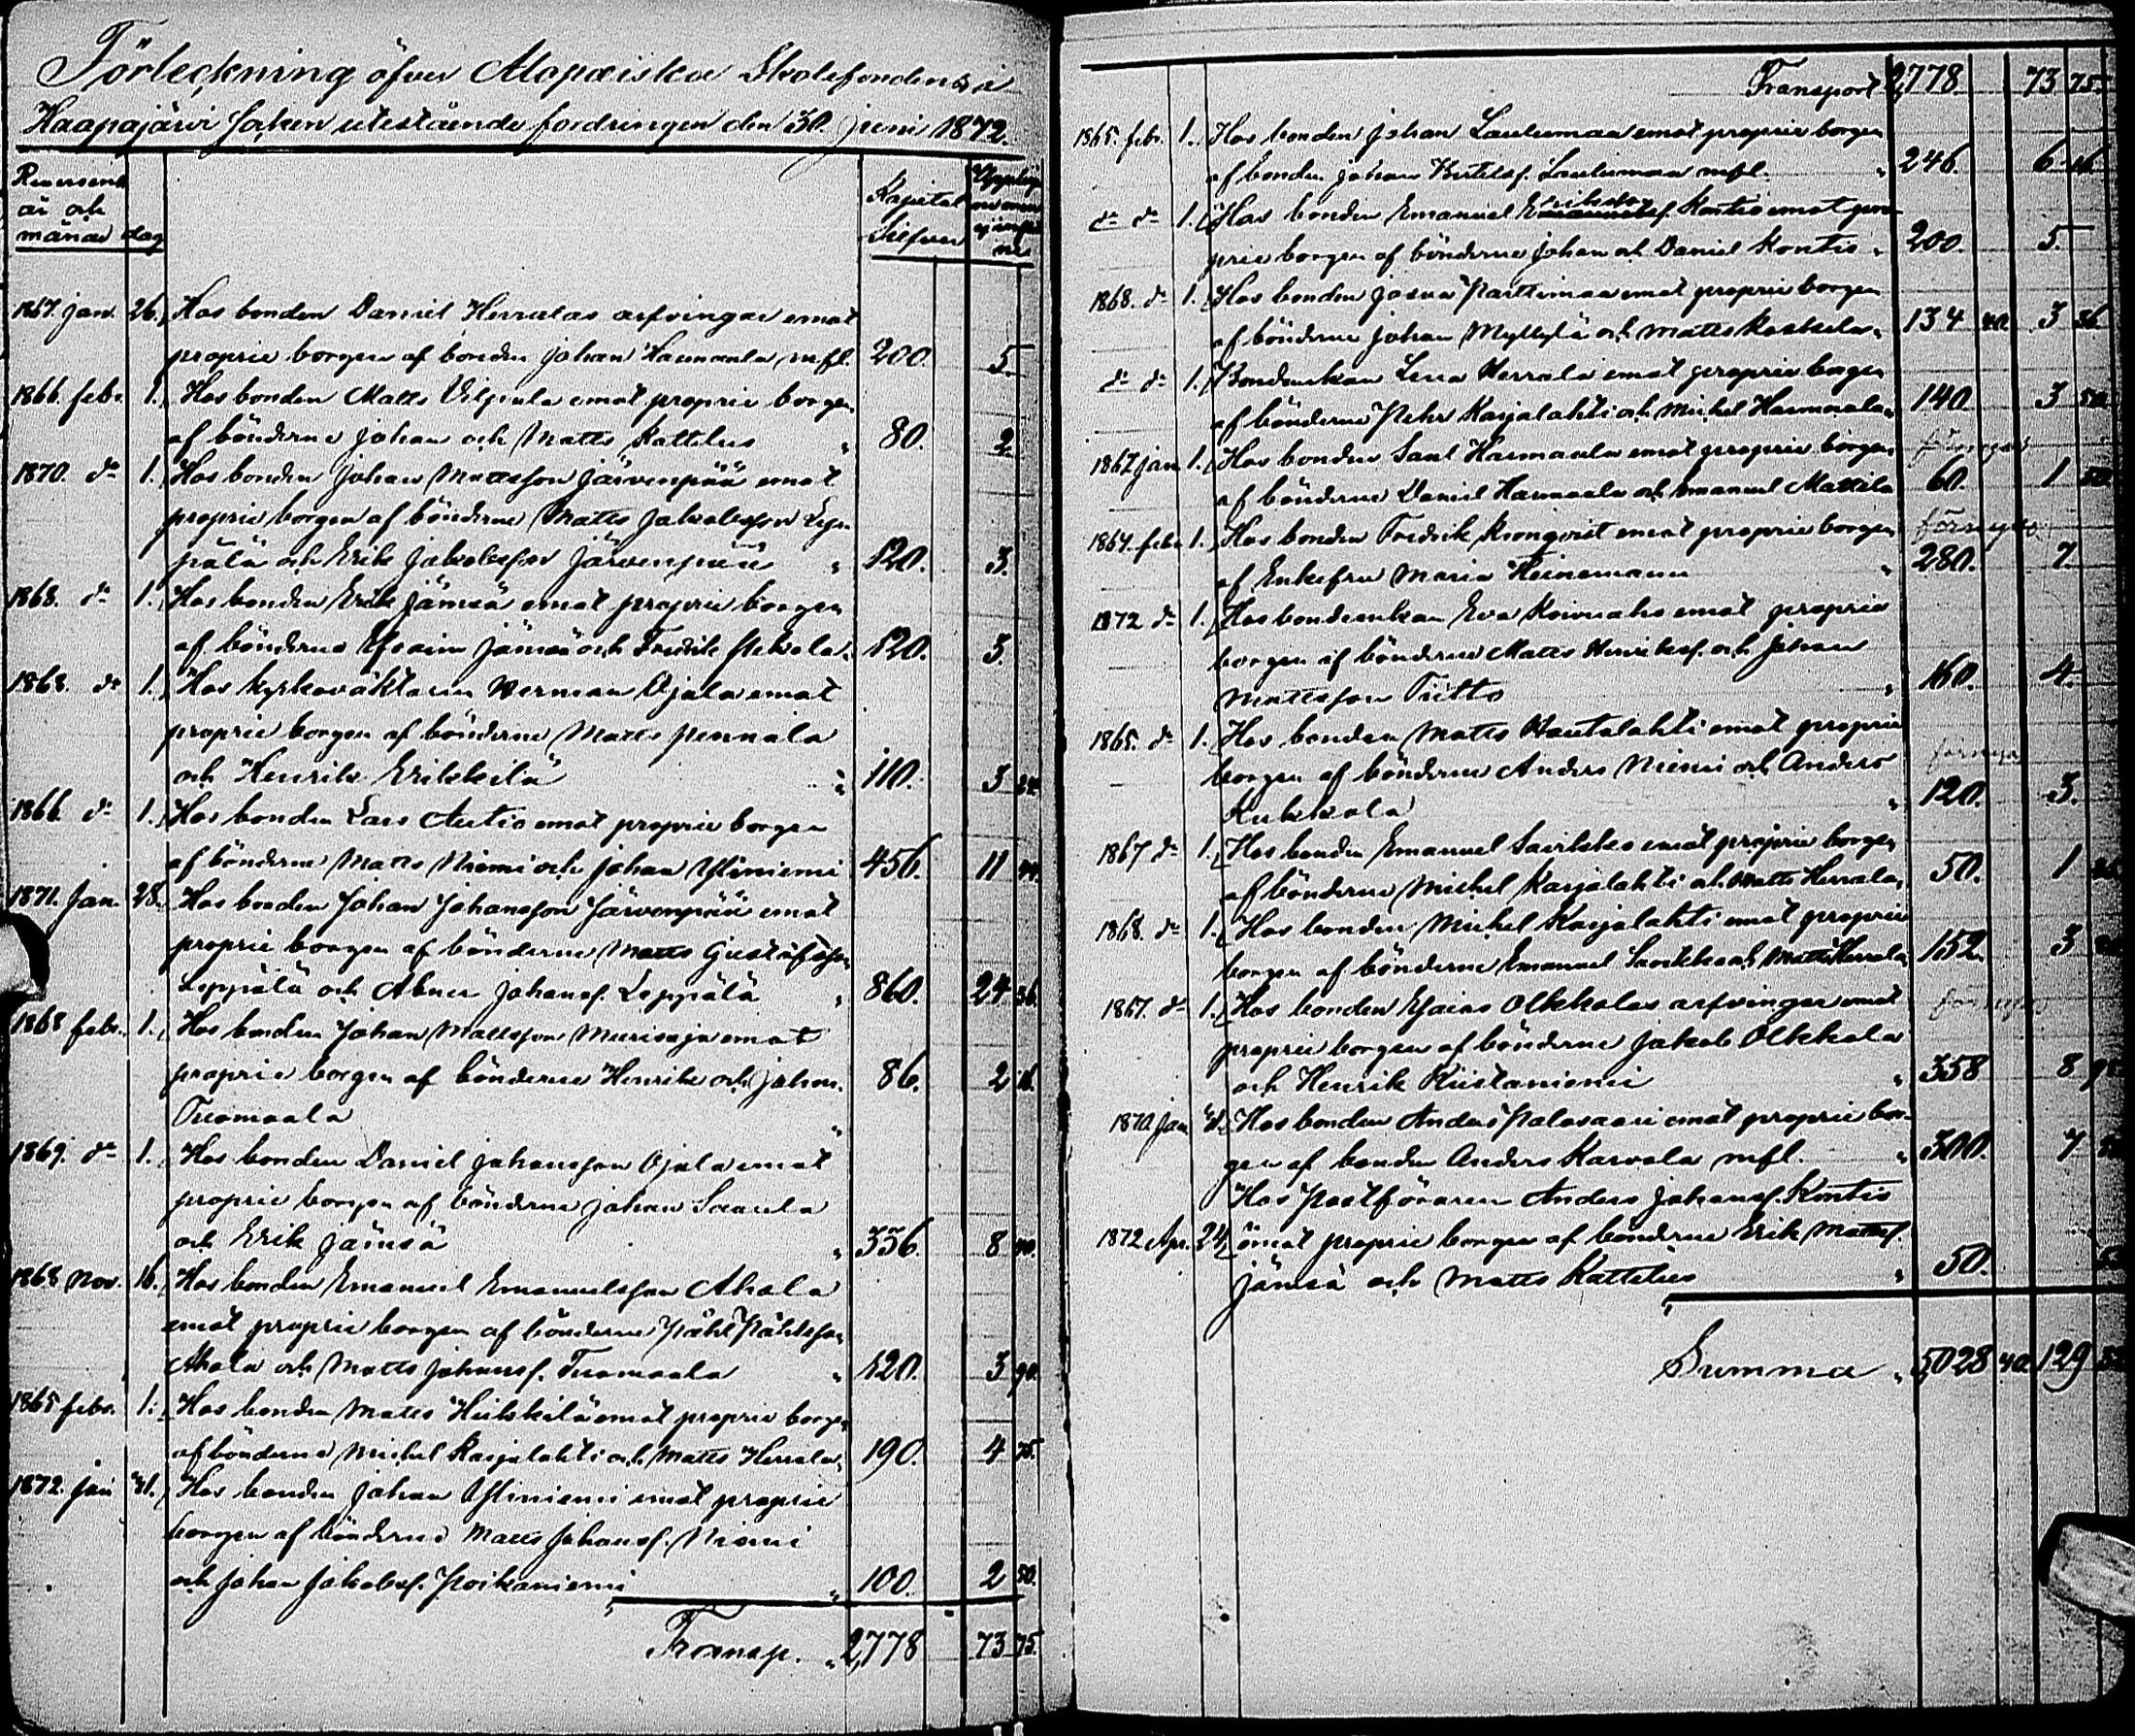 Förteckning öfver Alopæiska Skolefondens i
Haapajärvi Socken utestående fordringar den 30. Juni 1872.
Reversens
år och
månad dag
Kapital
Silfver
1867. jan. 26. Hos bonden Daniel Herralas arfvingar emot
proprie borgen af bonden Johan Haumaala mfl. 200. 5.
1866. febr. 1. Hos bonden Matts Vilpula emot proprie borgen
af bönderne Johan och Matts Kattilus " 80. 2
1870. do 1. Hos bonden Johan Mattsson Järvenpää emot
proprie borgen af bönderne Matts Jakobsson Lep-
pälä och Erik Jakobsson Järvenpää " 120. 3.
1868. do 1. Hos bonden Erik Jämsä emot proprie borgen
af bönderne Efraim Jämsä och Fredrik 120. 3.
1868. do 1. Hos kyrkovaktaren Herman Ojala emot
proprie borgen af bönderne Matts Pennala
och Henrik Erikkilä " 110. 3
1866. do 1. Hos bonden Lars Autio emot proprie borgen
af bönderne Matts Niemi och Johan Yliniemi 456. 11 40.
1871. Jan. 28. Hos bonden Johan Johansson Järvenpää emot
proprie borgen af bönderne Matts Gustafsson
Leppälä och Abner Johansf. Leppälä " 860. 24 36.
1868 febr. 1. Hos bonden Johan Mattsson Meurisaja emot
proprie borgen af bönderne Henrik och Johan 86. 2 16.
Tuomaala "
1869. do 1. Hos bonden Daniel Johansson Ojala emot
proprie borgen af bönderne Johan Saarela
och Erik Jämsä " 336. 8 40.
1868 Nov. 16. Hos bonden Emanuel Emanuelsson Ahola
emot proprie borgen af bönderne Påhl Påhlsson
Ahola och Matts Johansf. Tuomaala " 120. 3 90.
1865 febr. 1. Hos bonden Matts Heikkilä emot proprie borgen
af bönderne Michel Karjalahti och Matts Herrala " 190. 4 75.
1872. jan 31. Hos bonden Johan Yliniemi emot proprie
borgen af bönderne Matts Johansf. Niemi
och Johan Jakobsf. Poikaniemi " 100. 2 50.
Transp. " 2,778 73 75.
Transport 2,778. 73 75.
1865. febr. 1. Hos bonden Johan Laulumaa emot proprie borgen
af bonden Johan Laulumaa mfl. " 246. 6
do do 1. Hos bonden Emanuel Eriksson Kontio emot pro-
prie borgen af bönderne Johan och Daniel Kontio " 200. 5.
1868. do 1. Hos bonden Josua Parttimaa emot proprie borgen
af bönderne Johan Myllylä och Matts Keskila " 134 40. 3 36
do do 1. Bondenkan Lena Herrala emot proprie borgen
af bönderne Pehr Karjalahti och Michel Haumaala " 140. 3 50.
1867 jan 1. Hos bonden Saul Haumaala emot proprie borgen förnyas
af bönderne Daniel Haumaala och Emanuel Mattila 60. 1 50.
1867. febr 1. Hos bonden Fredrik Kronqvist emot proprie borgen förnyas
af Enkefru Maria Heinemann " 280. 7.
1872 do 1. Hos bondenkan Eva Koivuaho emot proprie
borgen af bönderne Matts Henriksf. och Johan
Mattsson Tritto " 160. 4.
1865. do 1. Hos bonden Matts Hautalahti emot proprie
borgen af bönderne Anders Niemi och Anders förnyas
Kukkola " 120. 3.
1867 do 1. Hos bonden Emanuel emot proprie borgen
af bönderne Michel Karjalahti och Matts Herrala " 50. 1
1868. do 1. Hos bonden Michel Karjalahti emot proprie
borgen af bönderne Emanuel och Matts Herrala 152. 3
1867. do 1. Hos bonden Esaias Olkkolas arfvingar emot förnyas
proprie borgen af bönderne Jakob Olkkola
och Henrik Kustaniemi " 358 8
1870 Jan 31. Hos bonden Anders Palosaari emot proprie bor-
gen af bonden Anders Karvola mfl. " 300. 7
Hos Postföraren Anders Johansf. Kontio
1872 Apr. 24. emot proprie borgen af bönderne Erik Mattsf.
Jämsä och Matts Kattilus " 50.
Summa " 5,028 40. 129